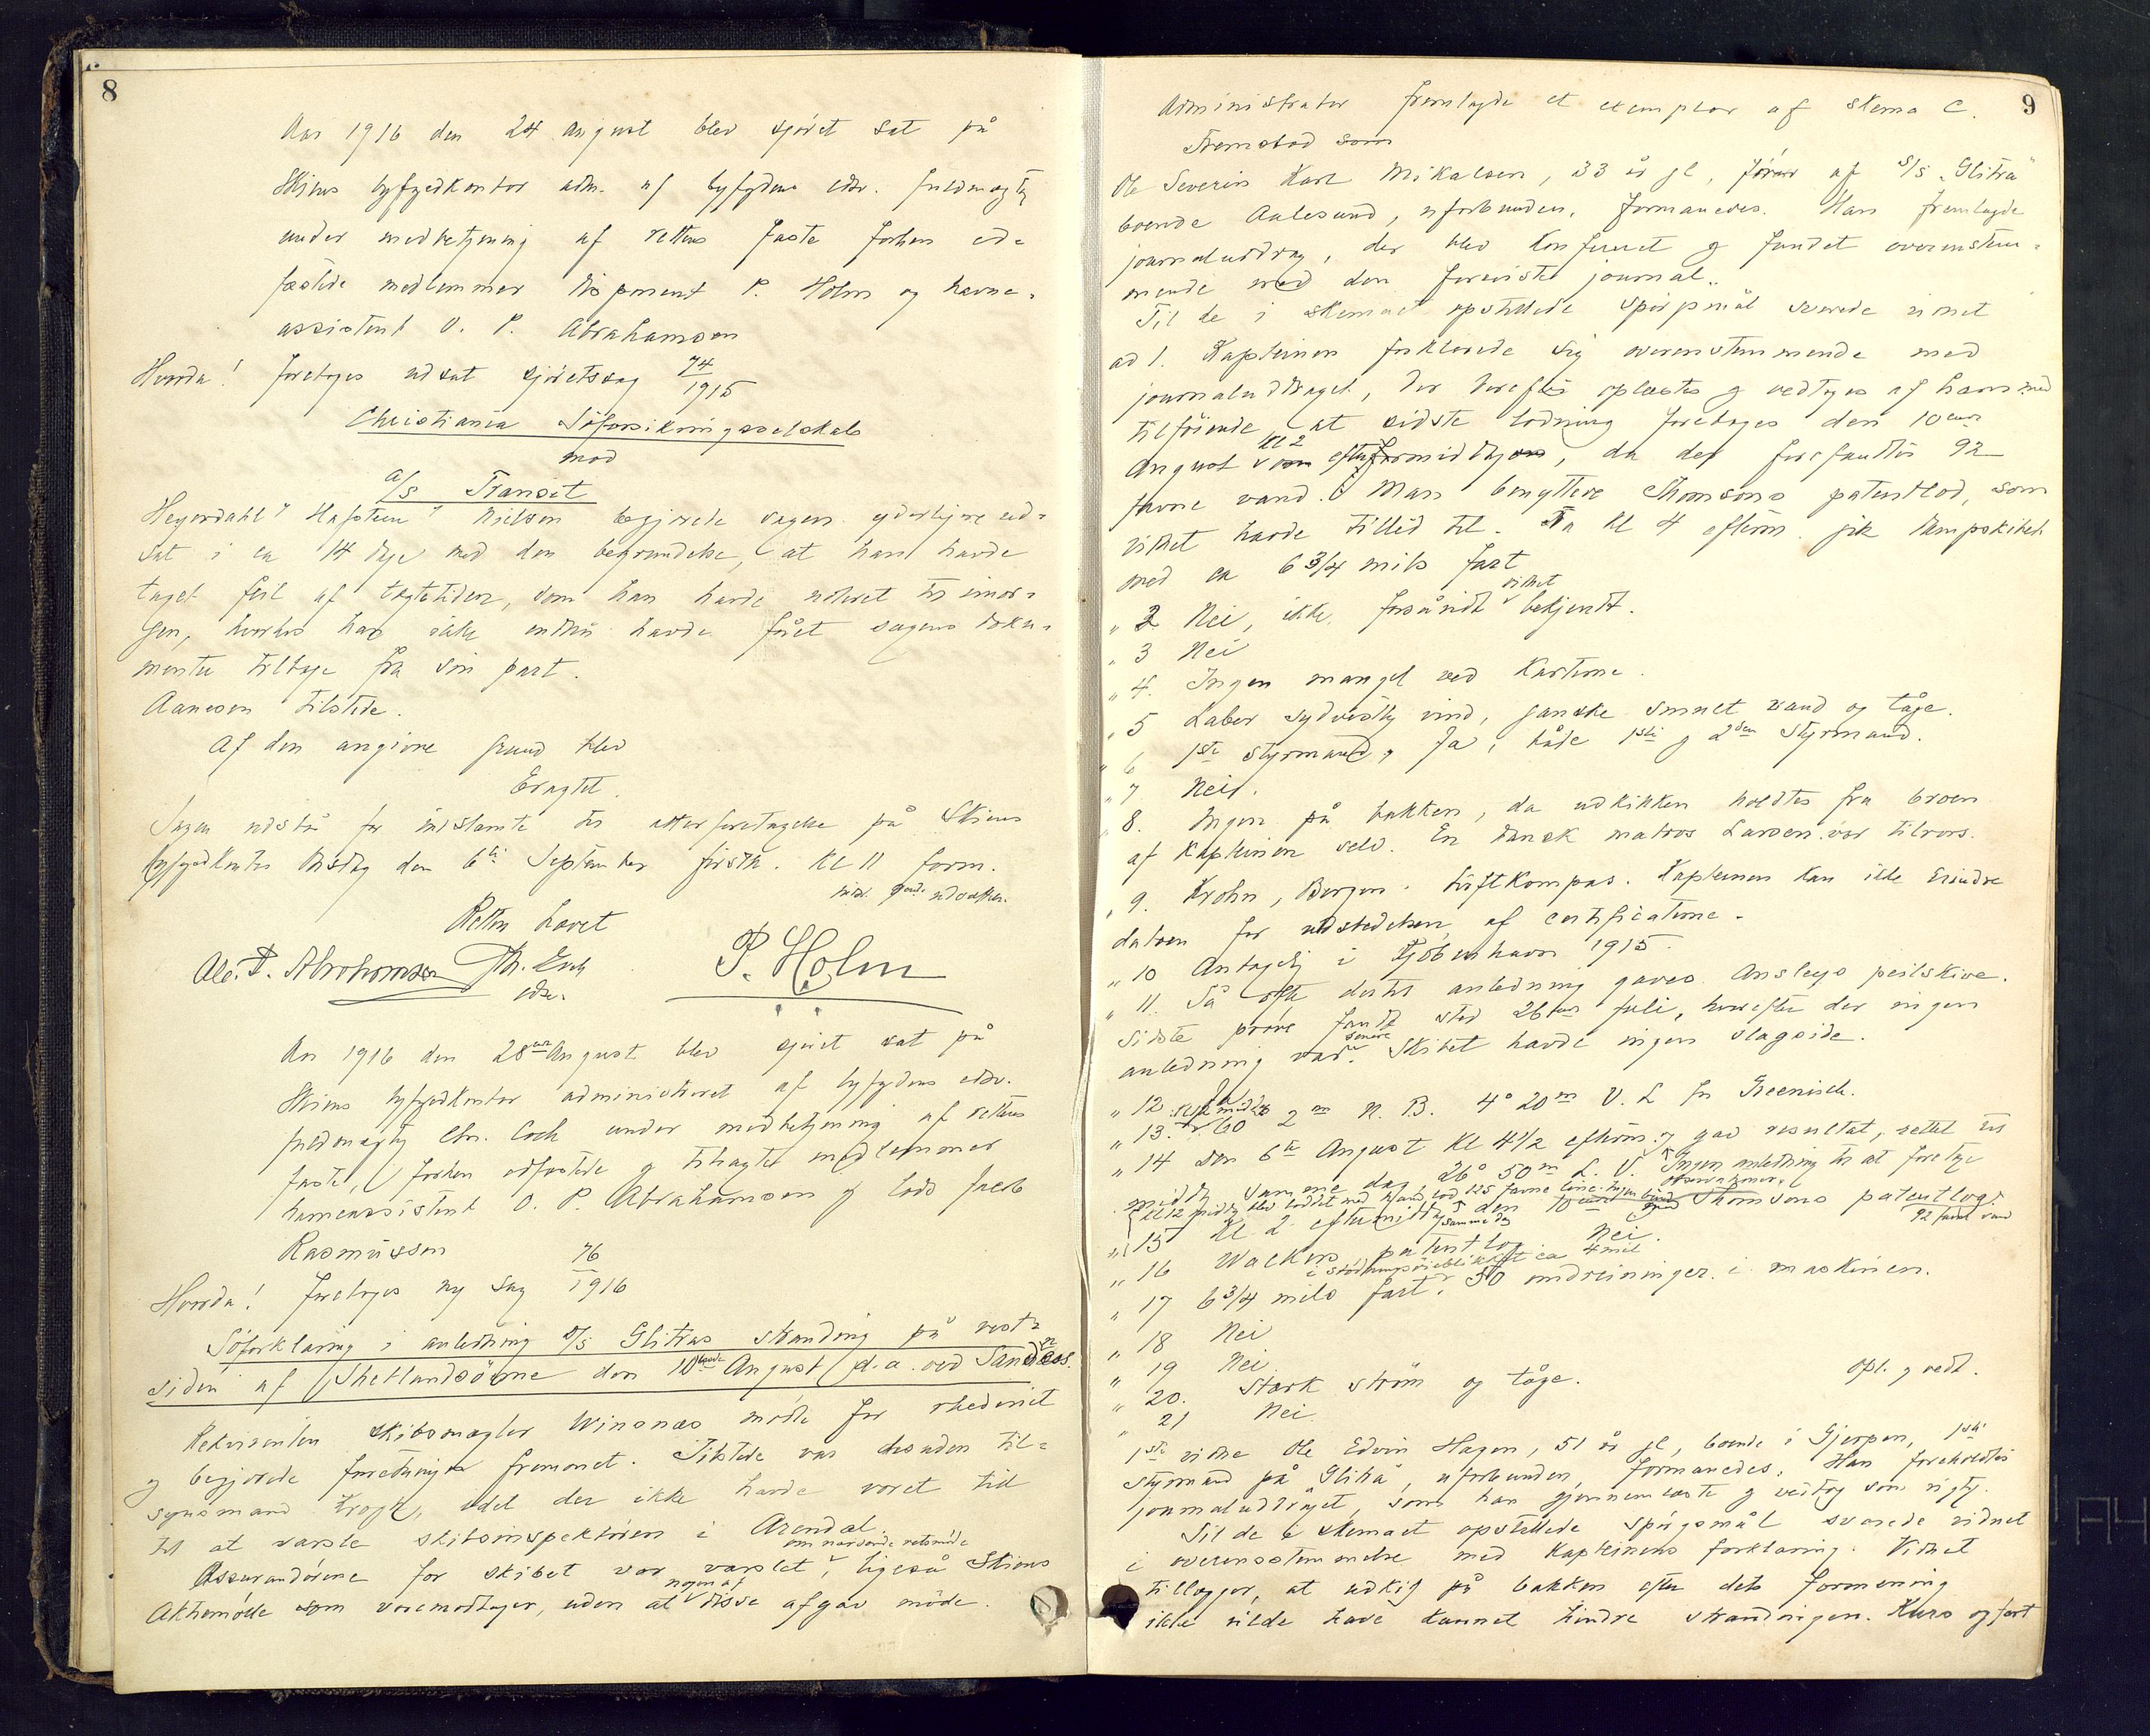 8
Aar 1916 den 24 august blev sjöret sat på
Skiens byfogedkontor adm. af byfogdens edsv. fuldmægtig
under medbetjening af rettens faste forhen ed=
fæstede medlemmer disponent P. Holm og havne=
assistent O. P. Abrahamsen
Hvorda! foretoges udsat sjöretssag 74/1915
Christiania Söforsikringsselskab
mod
a/s Transit
Heyerdahl v/ Hafsteen Nielsen begjærede sagen yderligere ud=
sat i ca 14 dage med den begrundelse, at han havde
taget feil af tægtetiden, som han havde noteret til imor=
gen, hvorhos han ikke endnu havde fået sagens doku=
menter tilbage fra sin part.
Aanesen tilstede.
Af den angivne grund blev
Eragtet.
Sagen udstår for instante til atterforetagelse på Skiens
byfogedkontor Onsdag den 6te September förstk. kl 11 form.
Retten hævet
Ole. P. Abrahamsen Th. Esch P. Holm
edsv.
Aar 1916 den 28de August blev sjöret sat på
Skiens byfogedkontor administreret af byfogdens edsv.
fuldmægtig Chr. Cock under medbetjening af rettens
faste, forhen edfæstede og tiltagte medlemmer
havneassistent O. P. Abrahamsen og lods Jacob
Rasmussen
Hvorda! foretoges ny sag 76/1916
Söforklaring i anledning S/s Glitras stranding på vest=
siden af Shetlandsöerne den 10de August d.a. ved Sandnes.
Rekvirenten skibsmægler Winsnæs mödte for rhederiet
og begjærede forretningen fremmet. Tilstede var desuden til=
synsmand Krogh, idet der ikke havde været tid
til at varsle skibsinspektören i Arendal.
om nærværende retsmöde
Assurandörene for skibet var varslet, ligeså Skiens
nogen af
Aktiemölle som varemodtager, uden at disse afgav möde.
9
Administrator fremlagde et exemplar af skema C.
Fremstod som
Ole Severin Karl Mikalsen, 33 år gl, förer af S/s "Glitra"
boende Aalesund, uforbunden, formanedes. Han fremlagde
journaludtrag, der blev konfereret og fundet overenstem=
mende med den foreviste journal.
Til de i skemaet opstillede spörgsmål svarede vidnet
ad 1. Kapteinen forklarede sig overensstemmende med
journaludtraget, der derefter oplæstes og vedtoges af ham med
tilföiende, at sidste lodning foretoges den 10de
kl 2
August om eftermiddagen, da der forefandtes 92
favne vand. Man benyttede Thomsons patentlod, som
vidnet havde tillid til. Fra kl 4 efterm. gik dampskibet
med ca 6 3/4 mils fart
vidnet
" 2 Nei, ikke forsåvidt bekjendt.
" 3 Nei
" 4. Ingen mangel ved karterne.
" 5 Laber sydvestlig vind, ganske smult vand og tåge.
" 6 1ste styrmand, Ja, både 1ste og 2den styrmand.
" 7 Nei.
" 8. Ingen på bakken, da udkikken holdtes fra broen
af kapteinen selv. En dansk matros Larsen var tilrors.
" 9. Krohn, Bergen. Törtkompas. Kapteinen kan ikke erindre
datoen for udstedelsen af certificaterne.
" 10 Antagelig i Kjöbenhavn 1915.
" 11. Så ofte dertil anledning gaves. Ansleys peilskive.
Sidste pröve fandt sted 26de juli, hvorefter der ingen
senere
anledning var. Skibet havde ingen slagside.
" 12 Ja
" 13. 60° 2m N. B. 4° 20m V. L fr Greenwich.
" 14 Den 6te August kl 4 1/2 efterm. og gav resultat, rettet til
middag samme dag 26° 50m L. V. Ingen anledning til at foretage
observationer.
" 15 Kl 2 eftermiddag den 10de med Thomsons patentlog.
samme dag 92 favne vand
" 16 Walkers patentlog. Nei.
i stödningsöieblikket ca 4 mil
" 17 6 3/4 mils fart. 50 omdreininger i maskinen.
" 18 Nei
" 19 Nei
" 20. Stærk ström og tåge.
" 21 Nei. Opl. og vedt.
1ste vidne Ole Edvin Hagen, 51 år gl, boende i Gjerpen, 1ste
styrmand på "Glitra", uforbunden, formanedes. Han foreholdtes
journaludtraget, som han gjennemlæste og vedtog som rigtig.
Til de i skemaet opstillede spörgsmål svarede vidnet
i overensstemmelse med kapteinens forklaring. Vidnet
tillægger, at udkig på bakken efter dets formening
ikke vilde have kunnet hindre strandingen. Kurs og fart